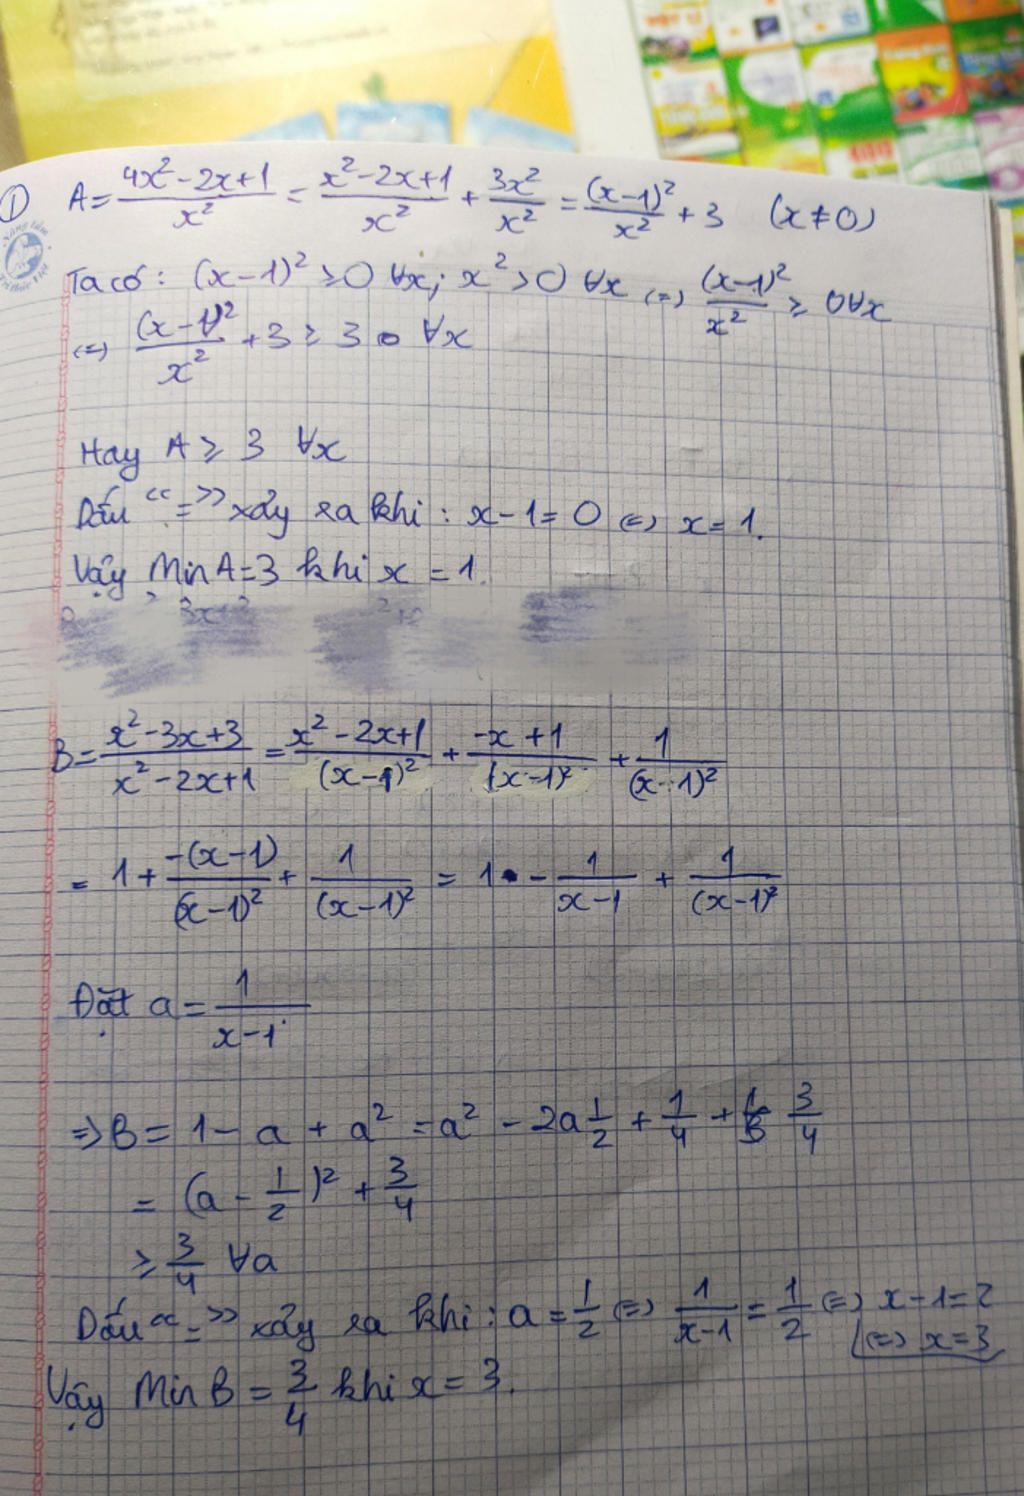 ① A = (4x² - 2x + 1)/x² = (x² - 2x + 1)/x² + 3x²/x² = (x-1)²/x² + 3 (x ≠ 0)
Ta có: (x-1)² ≥ 0 ∀x; x² > 0 ∀x (=) (x-1)²/x² ≥ 0 ∀x
(=) (x-1)²/x² + 3 ≥ 3 ∀x
Hay A ≥ 3 ∀x
Dấu "=" xảy ra khi: x-1 = 0 (=) x = 1.
Vậy Min A = 3 khi x = 1.
B = (x² - 3x + 3)/(x² - 2x + 1) = (x² - 2x + 1)/(x-1)² + (-x + 1)/(x-1)² + 1/(x-1)²
= 1 + -(x-1)/(x-1)² + 1/(x-1)² = 1 - 1/(x-1) + 1/(x-1)²
Đặt a = 1/(x-1)
=> B = 1 - a + a² = a² - 2a 1/2 + 1/4 + 3/4
= (a - 1/2)² + 3/4
≥ 3/4 ∀a
Dấu "=" xảy ra khi: a = 1/2 (=) 1/(x-1) = 1/2 (=) x-1 = 2
(=) x = 3
Vậy Min B = 3/4 khi x = 3.